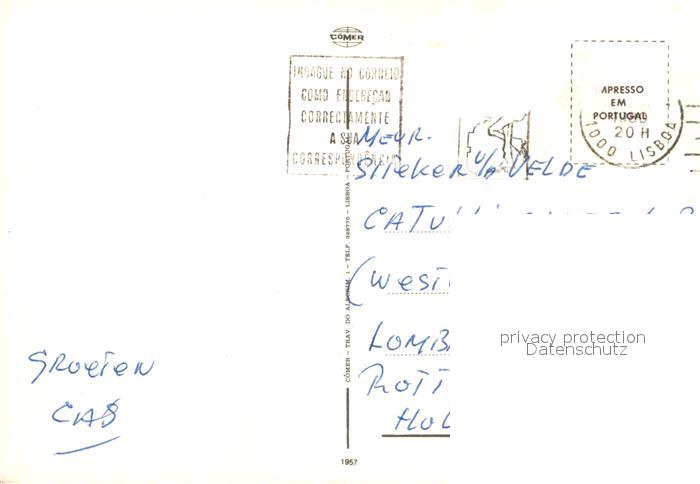 COMER
INDAGUE NO CORREIO
COMO ENDEREÇAR
CORRECTAMENTE
A SUA
CORRESPONDÊNCIA
MPRESSO
EM
PORTUGAL
20 H
1000 LISBOA
MEVR.
VELDE
CATU
(WEST
LOMB
ROTT
HOL
GROETEN
CAS
CÓMER - TRAV. DO ALECRIM, 1 - TELF. 328775 - LISBOA - PORTUGAL
1957
privacy protection
Datenschutz